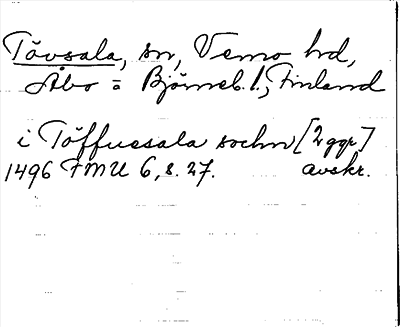 Tövsala, sn, Vemo hd,
Åbo = Björneb. l., Finland
i Töffuesala sochn [2 ggr]
1496 FMU 6, s. 27. avskr.